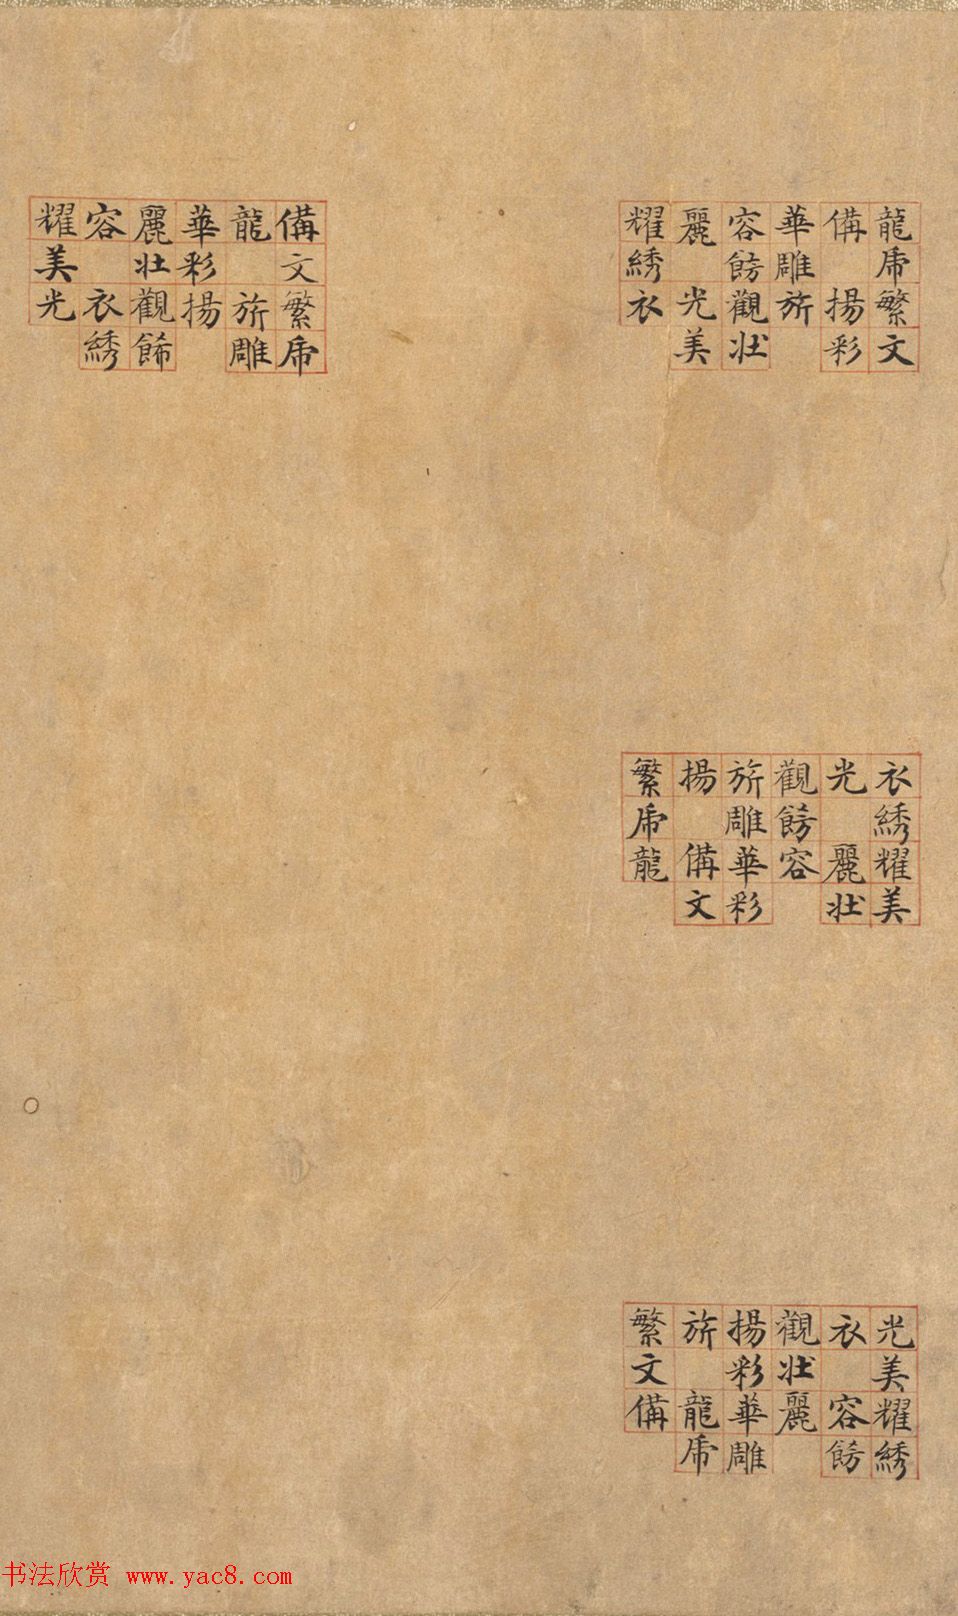 龍虎繁文
備 揚彩
華雕旂
容飾觀壯
麗 光美
耀綉衣
衣綉耀美
光 麗壯
觀飾容
旂雕華彩
揚 備文
繁虎龍
光美耀綉
衣 容飾
觀壯麗
揚彩華雕
旂 龍虎
繁文備
備文繁虎
龍 旂雕
華彩揚
麗壯觀飾
容 衣綉
耀美光
书法欣赏 www.yac8.com